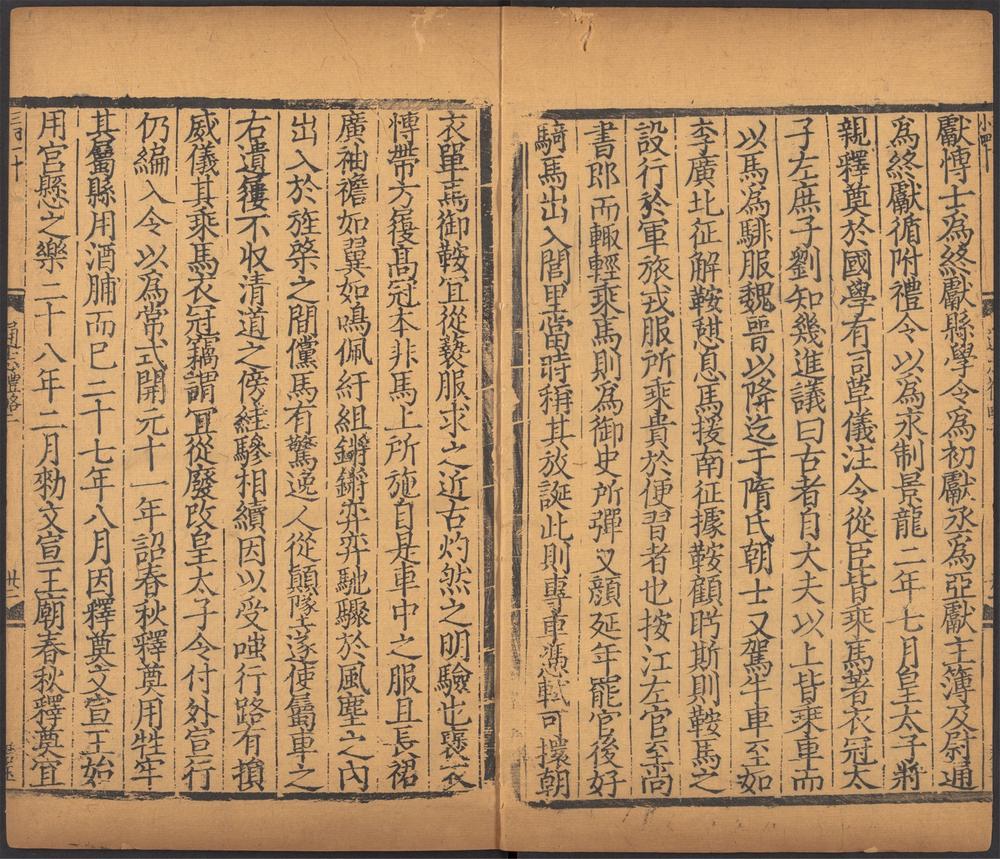 獻愽士爲終獻縣學令爲初獻丞爲亞獻主簿及尉通
爲終獻循附禮令以爲永制景龍二年七月皇太子將
親釋奠於國學有司草儀注令從臣皆乘馬著衣冠太
子左庶子劉知幾進議曰古者自大夫以上皆乘車而
以馬爲騑服魏晉以降迄于隋氏朝士又駕牛車至如
李廣北征解鞍憇息馬援南征據鞍顧眄斯則鞍馬之
設行於軍旅戎服所乘貴於便習者也按江左官至尚
書郎而輙輕乘馬則爲御史所彈又顔延年罷官後好
騎馬出入閭里當時稱其放誕此則專車憑軾可擐朝
衣單馬御鞍宜從褻服求之近古灼然之明驗也褒衣
愽帶方履髙冠本非馬上所施自是車中之服且長裙
廣袖襜如翼如鳴佩紆組鏘鏘弈弈馳驟於風塵之内
出入於旌棨之間儻馬有驚逸人從顛隊遂使屬車之
右遺履不收清道之傍絓驂相續因以受嗤行路有損
威儀其乘馬衣冠竊謂宜從廢改皇太子令付外宣行
仍編入令以爲常式開元十一年詔春秋釋奠用牲牢
其屬縣用酒脯而巳二十七年八月因釋奠文宣王始
用宫懸之樂二十八年二月勑文宣王廟春秋釋奠宜
通志禮略一
廿一